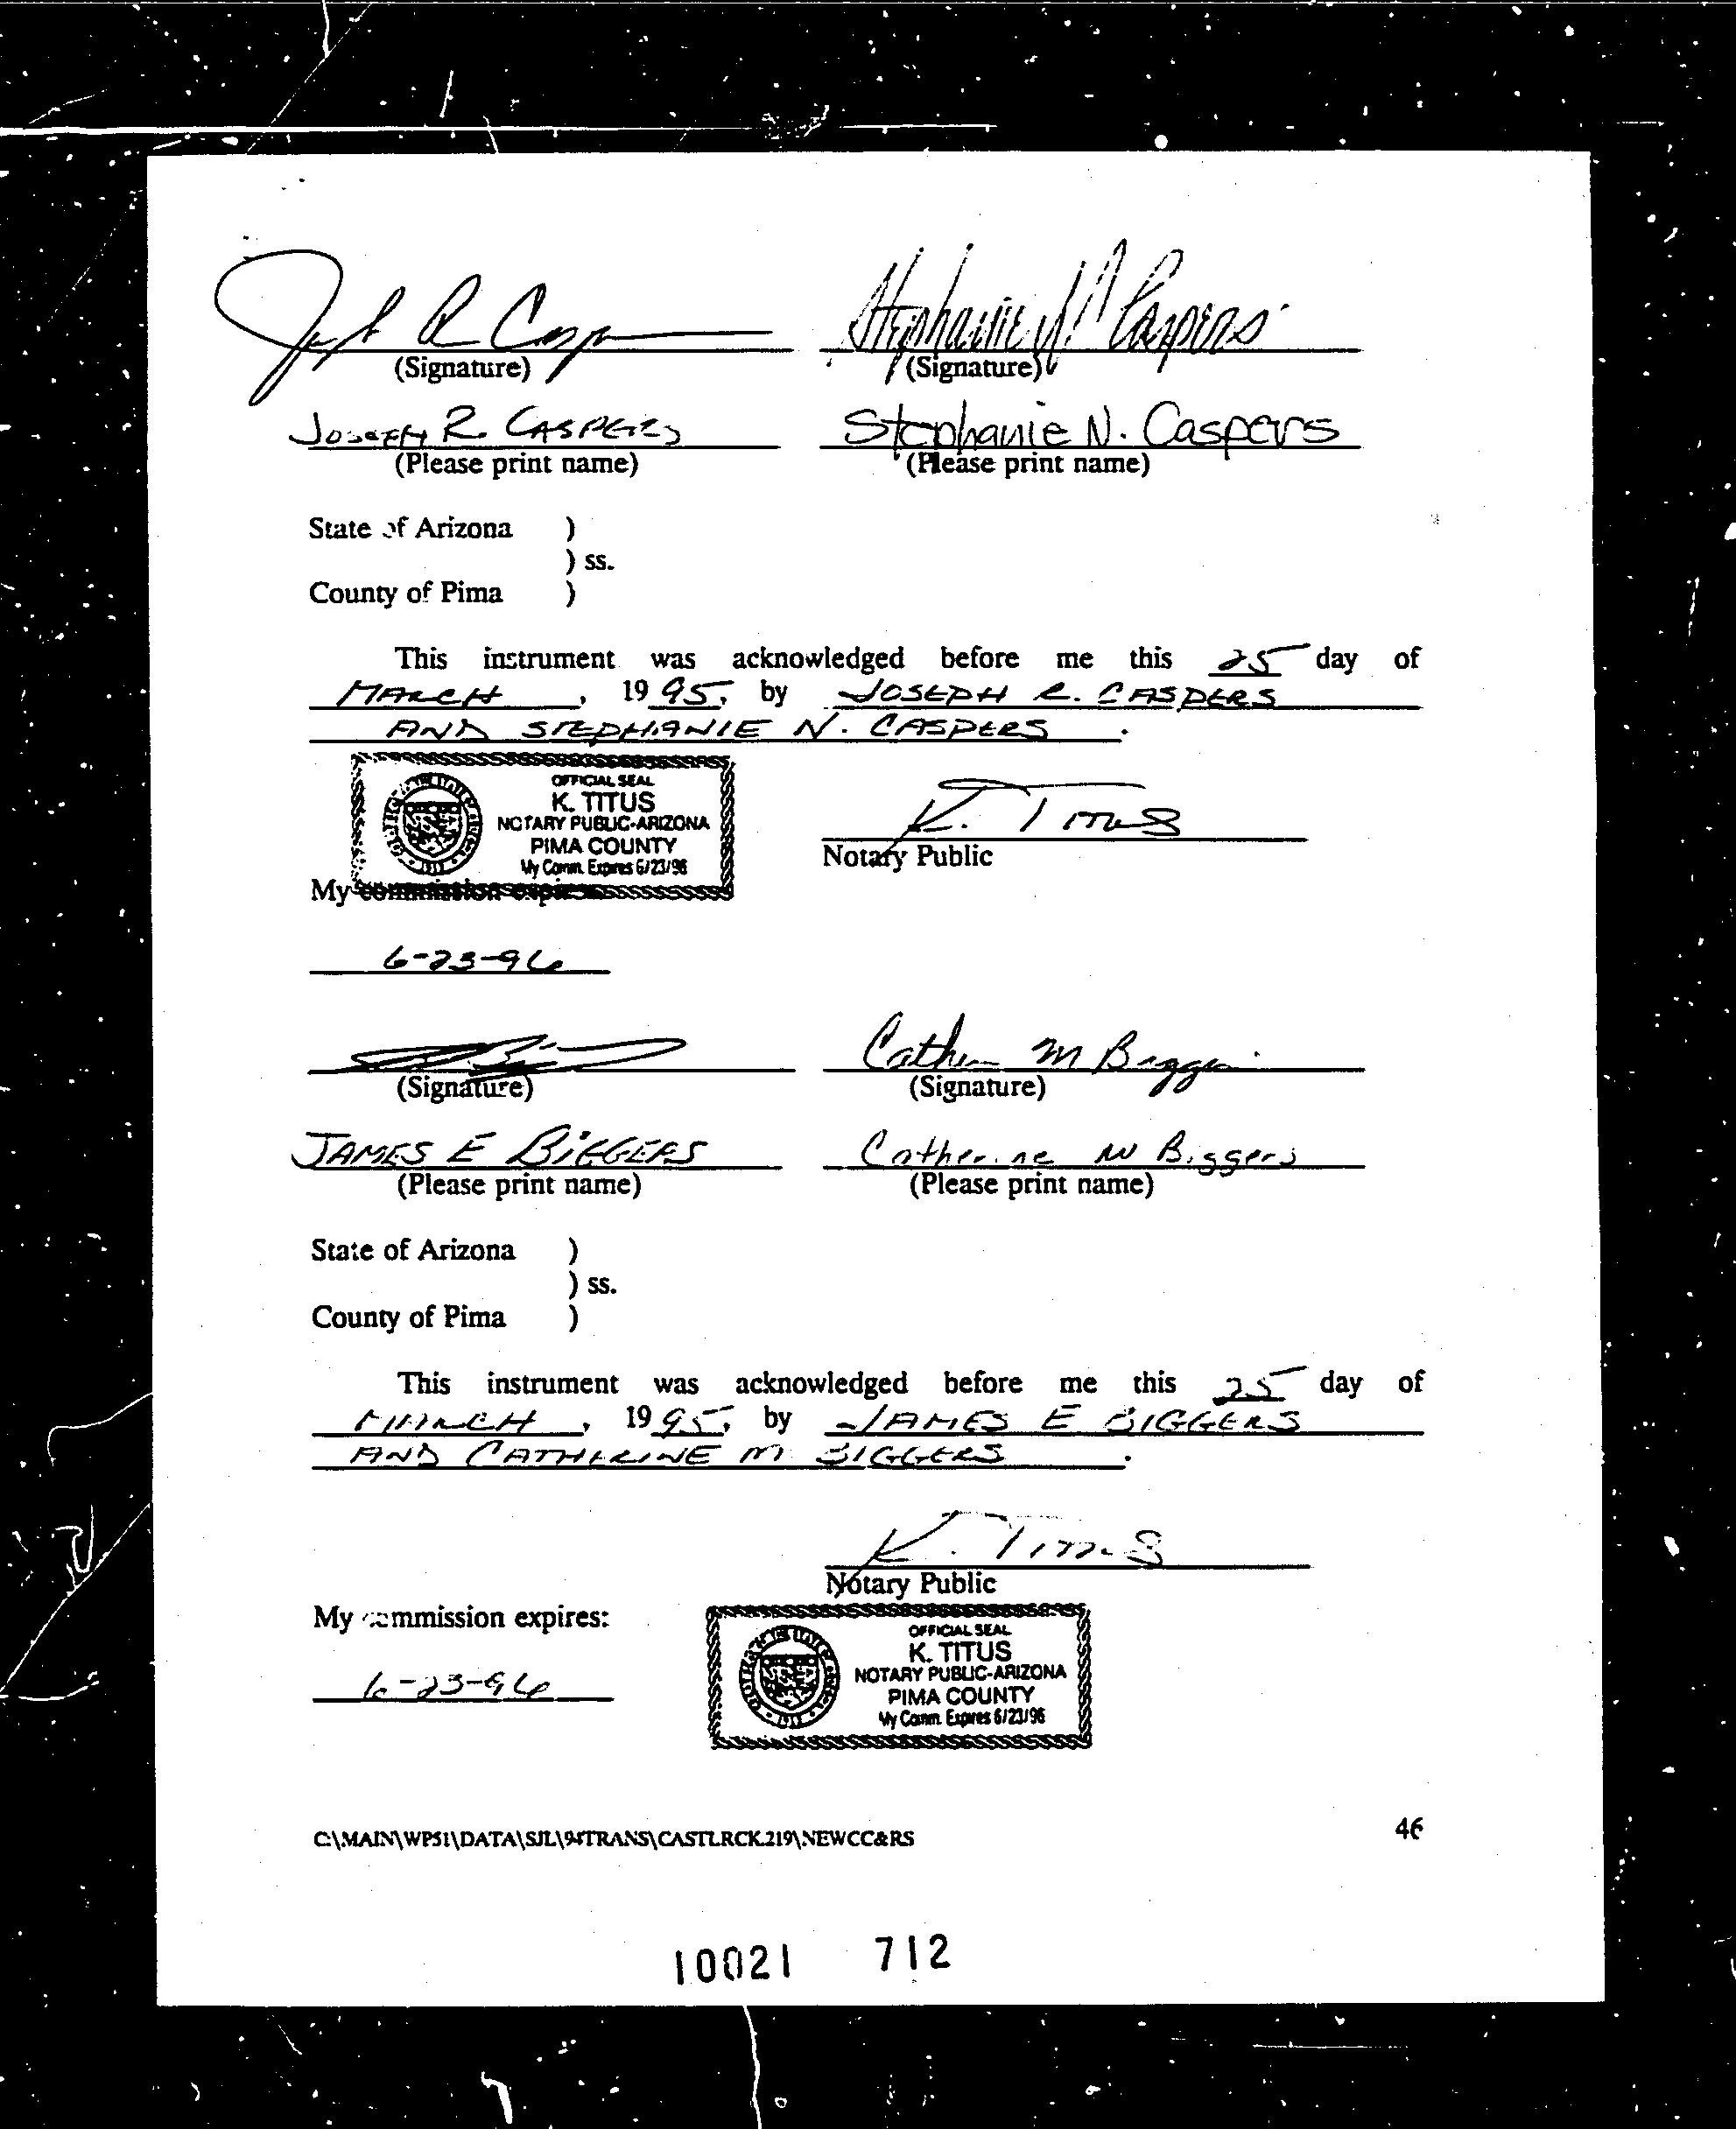 Joseph R Caspers Stephanie N. Caspers
(Signature) (Signature)
JOSEPH R. CASPERS Stephanie N. Caspers
(Please print name) (Please print name)
State of Arizona )
) ss.
County of Pima )
This instrument was acknowledged before me this 25 day of
MARCH, 1995, by JOSEPH R. CASPERS
AND STEPHANIE N. CASPERS.
OFFICIAL SEAL
K. TITUS
NOTARY PUBLIC-ARIZONA
PIMA COUNTY
My Comm. Expires 6/23/96
K. Titus
Notary Public
My commission expires
6-23-96
Catherine M Biggers
(Signature) (Signature)
JAMES E BIGGERS Catherine M Biggers
(Please print name) (Please print name)
State of Arizona )
) ss.
County of Pima )
This instrument was acknowledged before me this 25 day of
MARCH, 1995, by JAMES E BIGGERS
AND CATHERINE M BIGGERS.
K. Titus
Notary Public
My commission expires:
6-23-96
OFFICIAL SEAL
K. TITUS
NOTARY PUBLIC-ARIZONA
PIMA COUNTY
My Comm. Expires 6/23/96
C:\MAIN\WP51\DATA\SJL\94TRANS\CASTLRCK.219\NEWCC&RS 46
10021 712